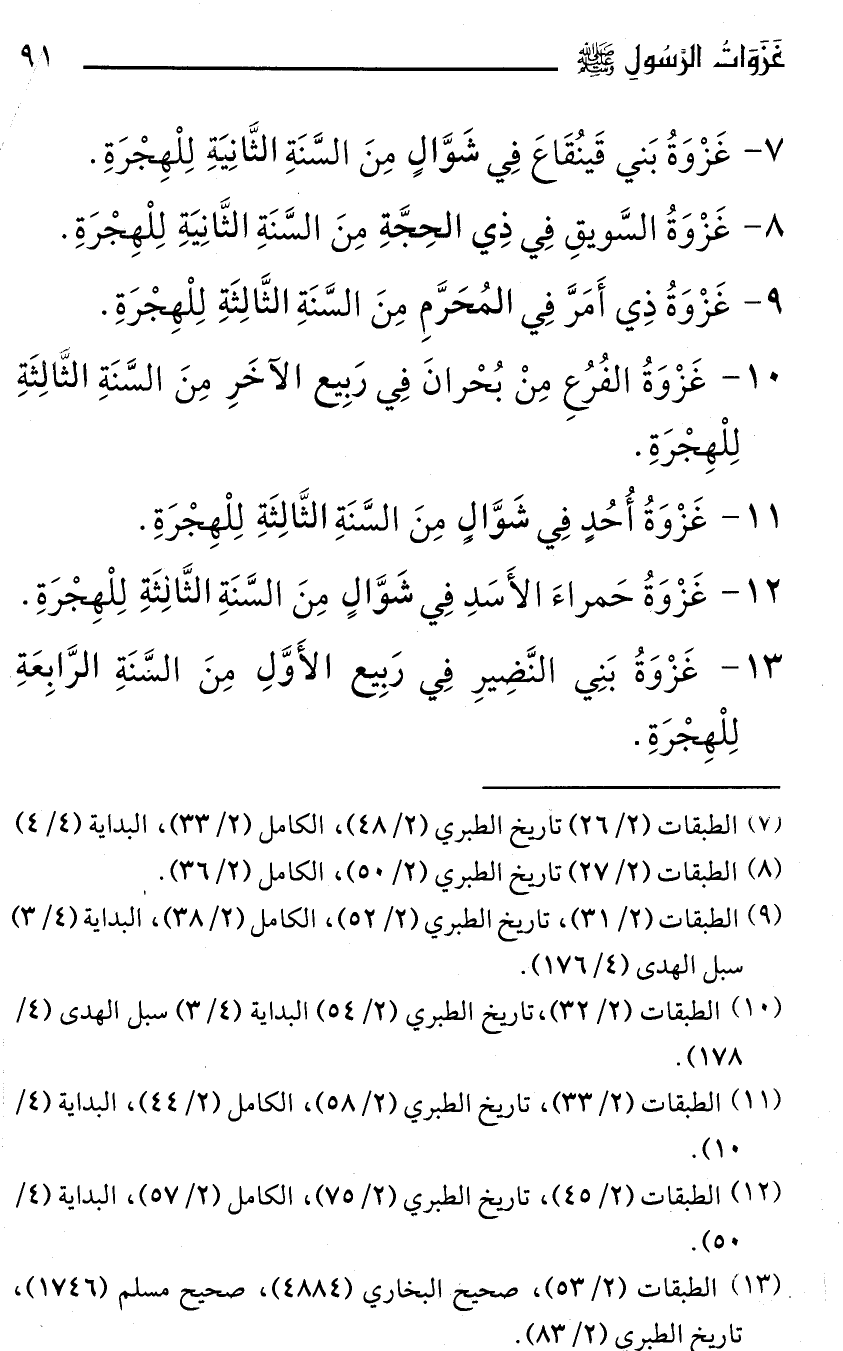 غَزَوَاتُ الرَّسُولِ ﷺ ٩١
٧- غَزْوَةُ بَني قَينُقَاعَ فِي شَوَّالٍ مِنَ السَّنَةِ الثَّانِيَةِ لِلْهِجْرَةِ.
٨- غَزْوَةُ السَّويقِ فِي ذِي الحِجَّةِ مِنَ السَّنَةِ الثَّانِيَةِ لِلْهِجْرَةِ.
٩- غَزْوَةُ ذِي أَمَرَّ فِي المُحَرَّمِ مِنَ السَّنَةِ الثَّالِثَةِ لِلْهِجْرَةِ.
١٠- غَزْوَةُ الفُرُعِ مِنْ بُحْرانَ فِي رَبِيع الآخَرِ مِنَ السَّنَةِ الثَّالِثَةِ
لِلْهِجْرَةِ.
١١- غَزْوَةُ أُحُدٍ فِي شَوَّالٍ مِنَ السَّنَةِ الثَّالِثَةِ لِلْهِجْرَةِ.
١٢- غَزْوَةُ حَمراءَ الأَسَدِ فِي شَوَّالٍ مِنَ السَّنَةِ الثَّالِثَةِ لِلْهِجْرَةِ.
١٣- غَزْوَةُ بَنِي النَّضِيرِ فِي رَبِيع الأَوَّلِ مِنَ السَّنَةِ الرَّابِعَةِ
لِلْهِجْرَةِ.
(٧) الطبقات (٢/ ٢٦) تاريخ الطبري (٢/ ٤٨)، الكامل (٢/ ٣٣)، البداية (٤/ ٤)
(٨) الطبقات (٢/ ٢٧) تاريخ الطبري (٢/ ٥٠)، الكامل (٢/ ٣٦).
(٩) الطبقات (٢/ ٣١)، تاريخ الطبري (٢/ ٥٢)، الكامل (٢/ ٣٨)، البداية (٤/ ٣)
سبل الهدى (٤/ ١٧٦).
(١٠) الطبقات (٢/ ٣٢)، تاريخ الطبري (٢/ ٥٤) البداية (٤/ ٣) سبل الهدى (٤/
١٧٨).
(١١) الطبقات (٢/ ٣٣)، تاريخ الطبري (٢/ ٥٨)، الكامل (٢/ ٤٤)، البداية (٤/
١٠).
(١٢) الطبقات (٢/ ٤٥)، تاريخ الطبري (٢/ ٧٥)، الكامل (٢/ ٥٧)، البداية (٤/
٥٠).
(١٣) الطبقات (٢/ ٥٣)، صحيح البخاري (٤٨٨٤)، صحيح مسلم (١٧٤٦)،
تاريخ الطبري (٢/ ٨٣).